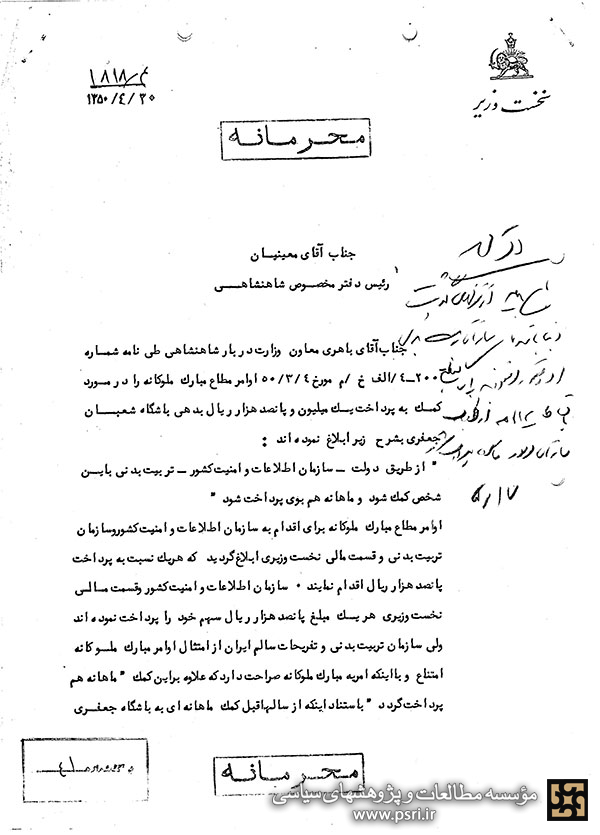 نخست وزیر
م/۱۸۱۸
۱۳۵۰/۴/۳۰
محرمانه
جناب آقای معینیان
رئیس دفتر مخصوص شاهنشاهی
جناب آقای باهری معاون وزارت دربار شاهنشاهی طی نامه شماره
۲۰۰-۴/الف خ/م مورخ ۵۰/۳/۴ اوامر مطاع مبارك ملوکانه را در مورد
کمك به پرداخت یك میلیون و پانصد هزار ریال بدهی باشگاه شعبان
جعفری بشرح زیر ابلاغ نموده اند :
" از طریق دولت – سازمان اطلاعات و امنیت کشور – تربیت بدنی باین
شخص کمك شود و ماهانه هم بوی پرداخت شود "
اوامر مطاع مبارك ملوکانه برای اقدام به سازمان اطلاعات و امنیت کشور و سازمان
تربیت بدنی و قسمت مالی نخست وزیری ابلاغ گردید که هریك نسبت به پرداخت
پانصد هزار ریال اقدام نمایند . سازمان اطلاعات و امنیت کشور وقسمت مالی
نخست وزیری هریك مبلغ پانصد هزار ریال سهم خود را پرداخت نموده اند
ولی سازمان تربیت بدنی و تفریحات سالم ایران از امتثال اوامر مبارك ملوکانه
امتناع و با اینکه امریه مبارك ملوکانه صراحت دارد که علاوه براین کمك " ماهانه هم
پرداخت گردد " باستناد اینکه از سالها قبل کمك ماهانه ای به باشگاه جعفری
محرمانه
مؤسسه مطالعات و پژوهشهای سیاسی
www.psri.ir